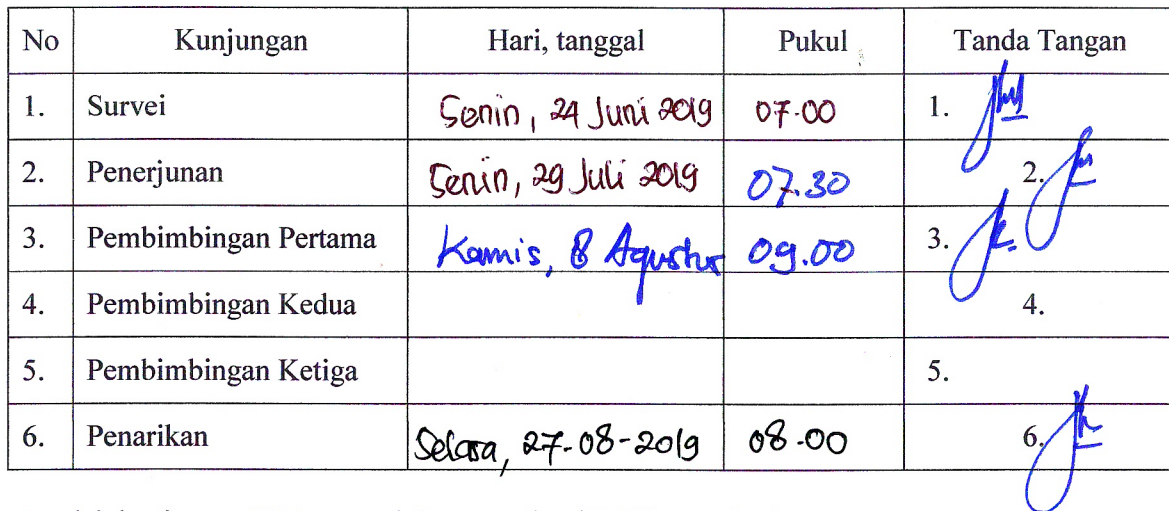 No Kunjungan Hari, tanggal Pukul Tanda Tangan
1. Survei Senin, 24 Juni 2019 07.00 1.
2. Penerjunan Senin, 29 Juli 2019 07.30 2.
3. Pembimbingan Pertama Kamis, 8 Agustus 09.00 3.
4. Pembimbingan Kedua 4.
5. Pembimbingan Ketiga 5.
6. Penarikan Selasa, 27-08-2019 08.00 6.